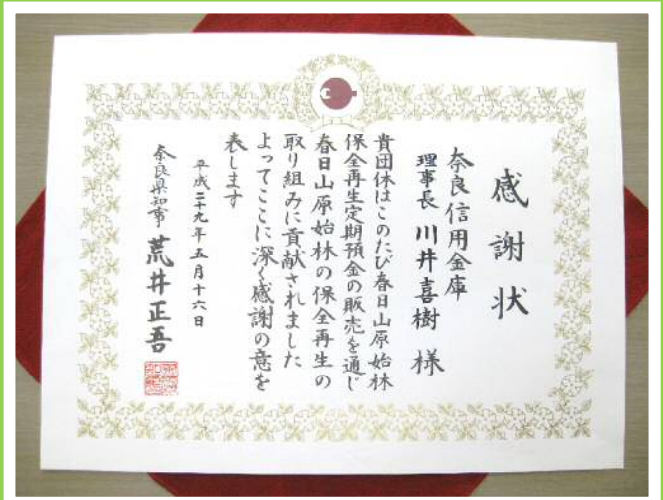 感謝状
奈良信用金庫
理事長 川井喜樹 様
貴団体はこのたび春日山原始林
保全再生定期預金の販売を通じ
春日山原始林の保全再生の
取り組みに貢献されました
よってここに深く感謝の意を
表します
平成二十九年五月十六日
奈良県知事 荒井正吾